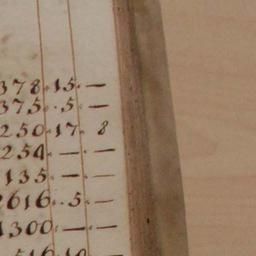 378 · 15 · —
375 · 5 · —
250 · 17 · 8
254 · — · —
135 · — · —
2616 · 5 · —
1300 · — · —